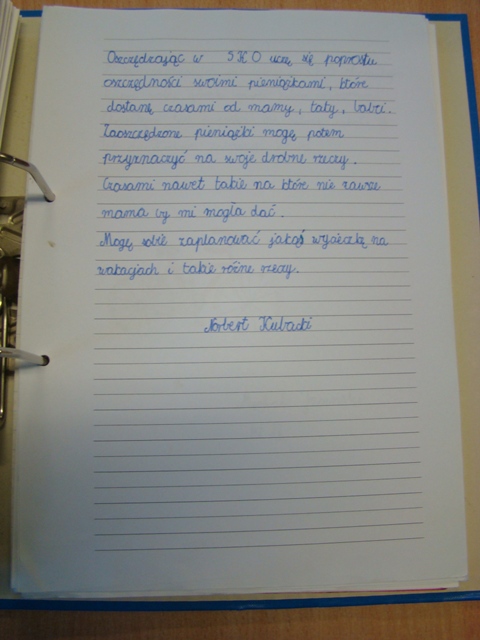 Oszczędzając w SKO uczę się poprostu
oszczędności swoimi pieniążkami, które
dostanę czasami od mamy, taty, babci.
Zaoszczędzone pieniążki mogę potem
przyznaczyć na swoje drobne rzeczy.
Czasami nawet takie na które nie zawsze
mama by mi mogła dać.
Mogę sobie zaplanować jakąś wycieczkę na
wakacjach i takie różne rzeczy.
Norbert Kubacki